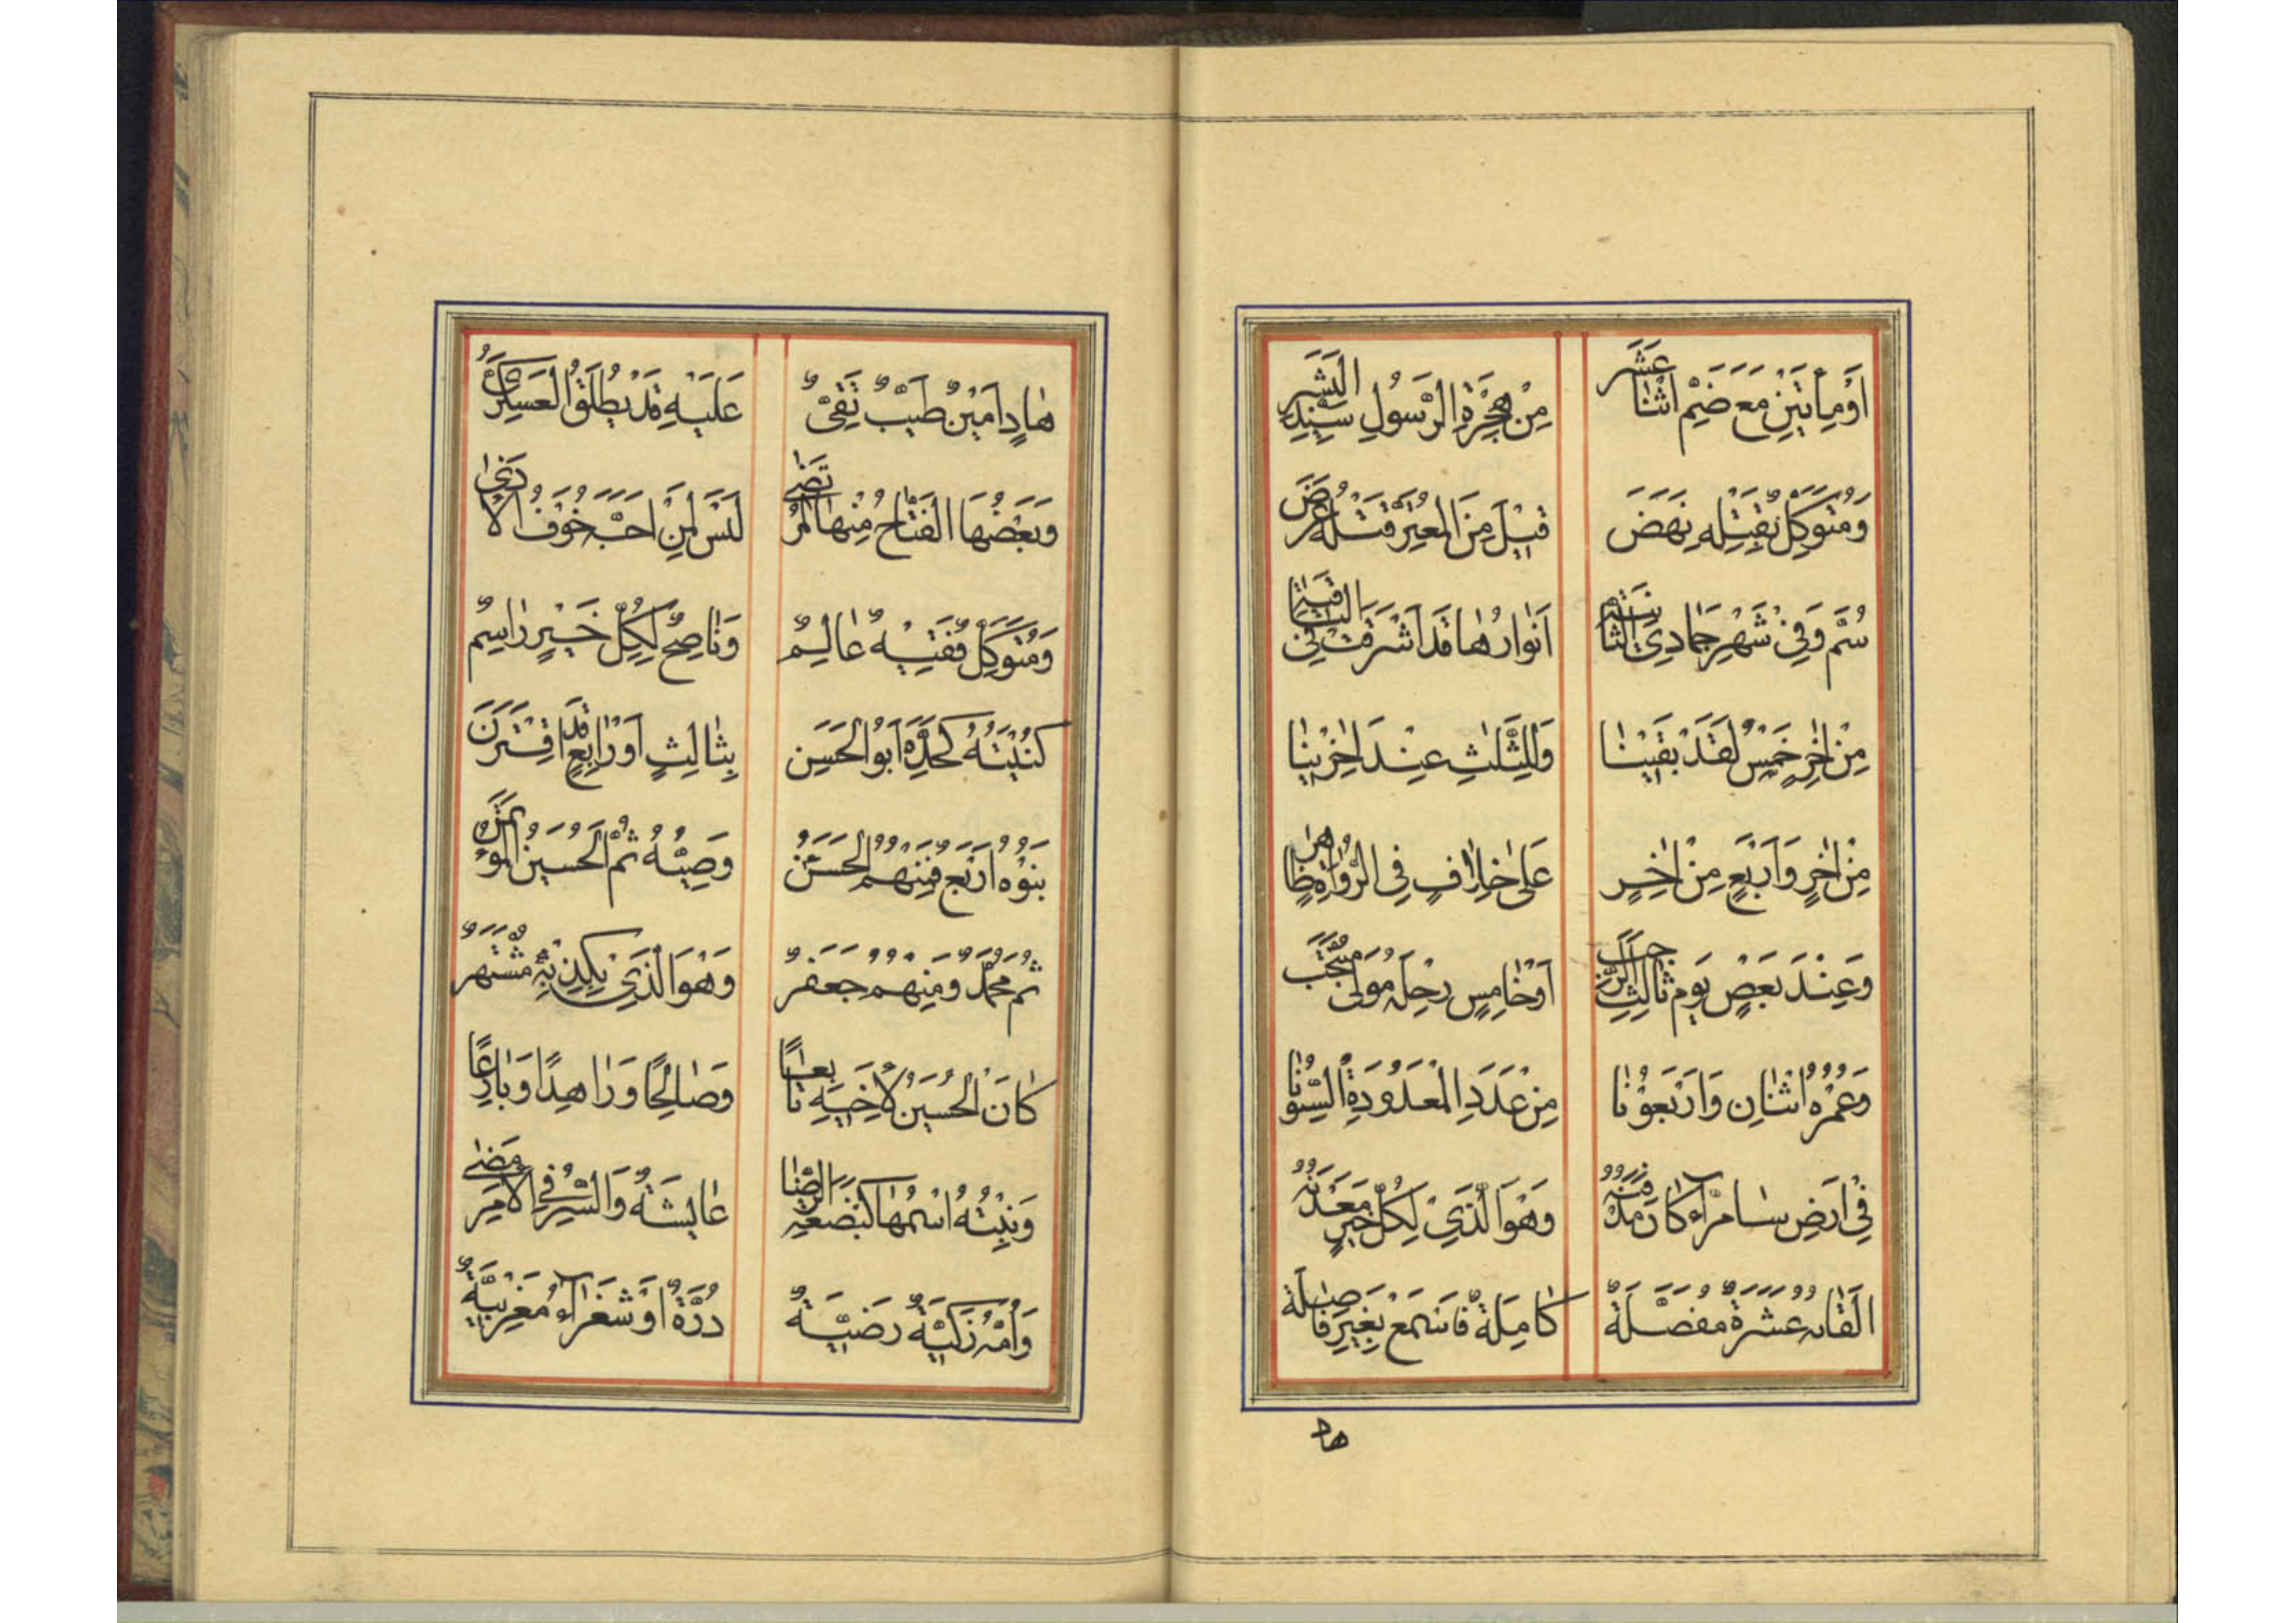 اَوْمِاَتَيْنِ مَعَ ضَمِّ اثْنٰا عَشَرَ مِنْ هِجْرَةِ الرَّسُولِ سَيِّدِ الْبَشَرِ
وَمُتَوَكِّلٌ بِقَتْلِهِ نَهَضَ قِيْلَ مِنَ الْمُعِيْنِ قَتْلُهُ عَرَضَ
سُمَّ وَفِيْ شَهْرِ جَمٰادِي الثّٰانِيَةِ اَنْوٰارُهٰا قَدْ اَشْرَقَتْ فِي
مِنْ اٰخِرٍ خَمْسٌ لَقَدْ بَقَيْنٰا وَلِلثَّلٰثِ عِنْدَ اٰخِرْيْنٰا
مِنْ اٰخِرٍ وَاَرْبَعٍ مِنْ اٰخِرٍ عَلىٰ خِلٰافٍ فِي الرُّوٰاةِ ظٰاهِرٍ
وَعِنْدَ بَعْضٍ يَوْمِ ثٰالِثِ الرَّجَبِ اَوْخٰامِسٍ رِحْلَةُ مَوْلىٰ
وَعُمْرُهُ اثْنٰانِ وَاَرْبَعُوْنٰا مِنْ عَدَدِ الْمَعْدُوْدَةِ السِّنُوْنٰا
فِيْ اَرْضِ سٰامَرّٰآءَ كٰانَ مَدْفَنُهُ وَهْوَ الَّذِيْ لِكُلِّ خَيْرٍ مَعْدَنُهُ
اَلْقٰابُهُ عَشْرَةٌ مُفَصَّلَةٌ كٰامِلَةٌ فَاسْمَعْ بِغَيْرِ فٰاصِلَةٍ
هاد
هٰادٍ اَمِيْنٌ طَيِّبٌ تَقِيٌّ عَلَيْهِ قَدْ يُطْلَقُ الْعَسْكَرِيُّ
وَبَعْضُهَا الْفَتّٰاحُ مِنْهٰا الْمُرْتَضىٰ لَيْسَ لِمَنْ اَحَبَّ خَوْفُ الْاَذىٰ
وَمُتَوَكِّلٌ فَقِيْهٌ عٰالِمٌ وَنٰاصِحٌ لِكُلِّ خَيْرٍ رٰاسِمٌ
كُنْيَتُهُ كَجَدِّهِ اَبُوالْحَسَنِ بِثٰالِثٍ اَوْ رٰابِعٍ قَدْ اقْتَرَنَ
بَنُوْهُ اَرْبَعٌ فَمِنْهُمُ الْحَسَنُ وَصِيُّهُ ثُمَّ الْحُسَيْنُ الْمُؤْتَمَنُ
ثُمَّ مُحَمَّدٌ وَمِنْهُمْ جَعْفَرٌ وَهْوَ الَّذِيْ بِكِذْبِهِ مُشْتَهَرٌ
كٰانَ الْحُسَيْنُ لِاَخِيْهِ تٰابِعاً وَصٰالِحًا وَزٰاهِدًا وَبٰارِعًا
وَبِنْتُهُ اسْمُهٰا كَبَضْعَةِ الرِّضٰا عٰايِشَةٌ وَالسِّرُّ فِي الْاَمْرِ مَضىٰ
وَاُمُّهُ زَكِيَّةٌ رَضِيَّةٌ دُرَّةٌ اَوْ شَغْرٰآءُ مَغْرِبِيَّةٌ